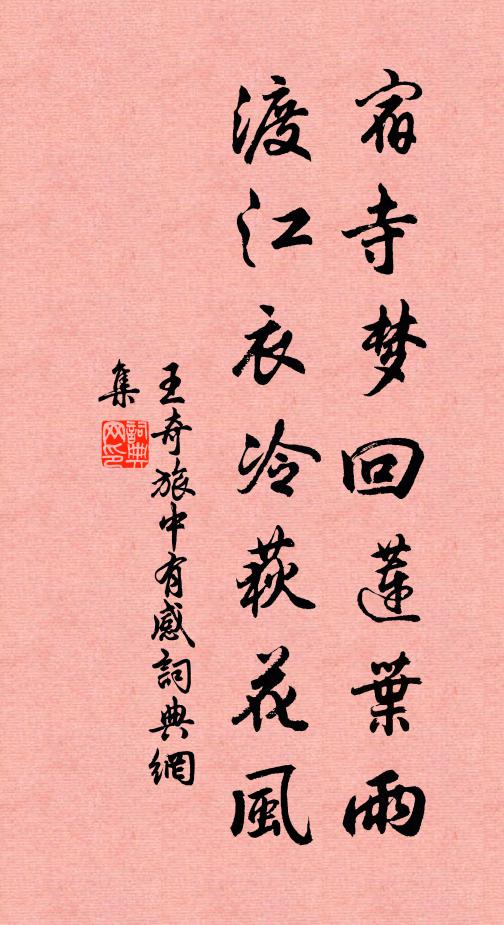 宿寺梦回蓮葉雨
渡江衣冷荻花風
王奇旅中有感詞典網
集
詞典
网印